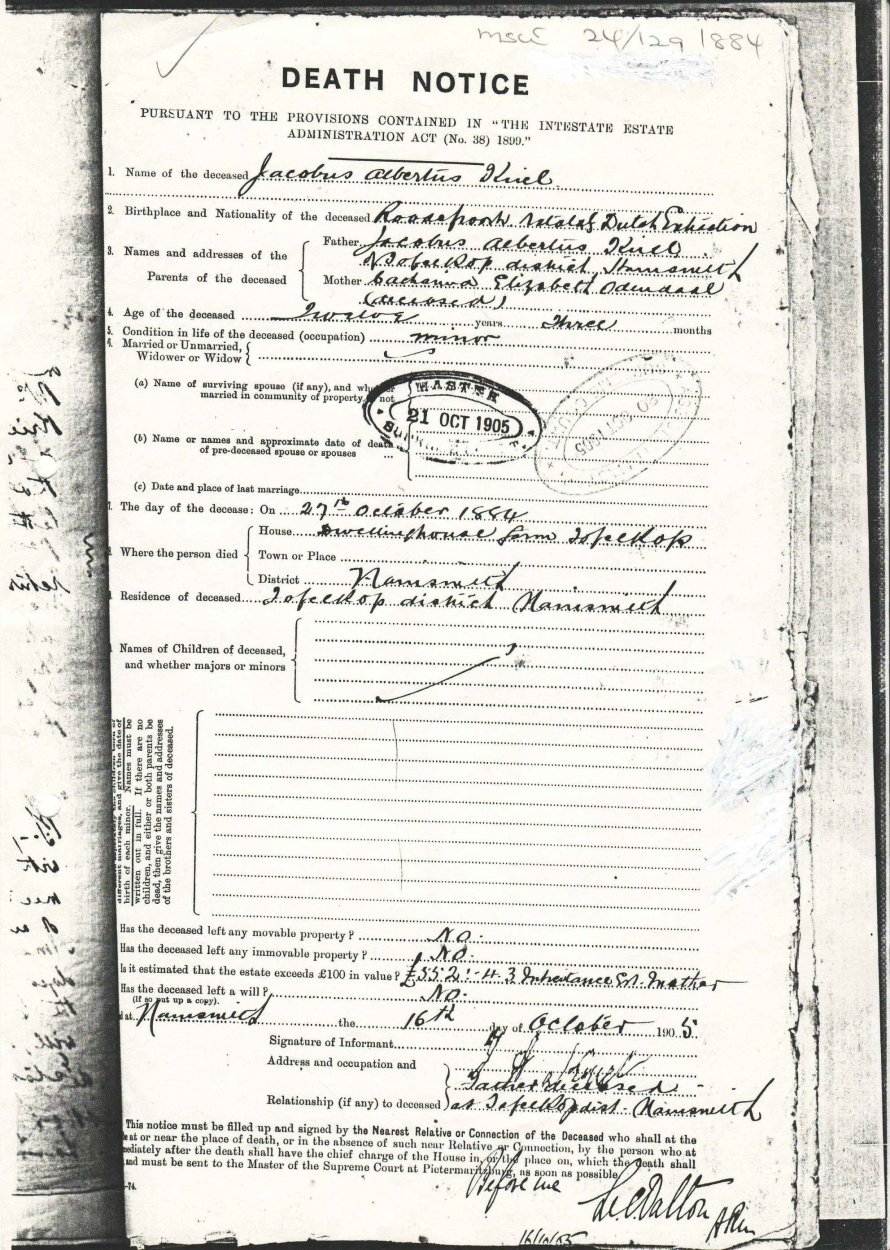 msce 24/129 1884
DEATH NOTICE
PURSUANT TO THE PROVISIONS CONTAINED IN "THE INTESTATE ESTATE
ADMINISTRATION ACT (No. 38) 1899."
1. Name of the deceased Jacobus Albertus Kriel
2. Birthplace and Nationality of the deceased Natal Dutch Extraction
3. Names and addresses of the Parents of the deceased
Father Jacobus Albertus Kriel
Tafelkop district Harrismith
Mother Elizabeth Odendaal
(deceased)
4. Age of the deceased Twelve years Three months
5. Condition in life of the deceased (occupation) minor
6. Married or Unmarried,
Widower or Widow
(a) Name of surviving spouse (if any), and whether
married in community of property, or not
MASTER
21 OCT 1905
(b) Name or names and approximate date of death
of pre-deceased spouse or spouses
(c) Date and place of last marriage
The day of the decease: On 27th October 1884
Where the person died
House Dwellinghouse farm Tafelkop
Town or Place
District Harrismith
Residence of deceased Tafelkop district Harrismith
Names of Children of deceased,
and whether majors or minors
different marriages, and give the date of
birth of each minor. Names must be
written out in full. If there are no
children, and either or both parents be
dead, then give the names and addresses
of the brothers and sisters of deceased.
Has the deceased left any movable property? No.
Has the deceased left any immovable property? No.
Is it estimated that the estate exceeds £100 in value? £552: 4. 3 Inheritance Est. Mother
Has the deceased left a will? No.
(If so put up a copy).
at Harrismith the 16th day of October 1905
Signature of Informant
Address and occupation and
Father deceased
Relationship (if any) to deceased at Tafelkop dist. Harrismith
This notice must be filled up and signed by the Nearest Relative or Connection of the Deceased who shall at the
at or near the place of death, or in the absence of such near Relative or Connection, by the person who at
mediately after the death shall have the chief charge of the House in, or the place on, which the death shall
and must be sent to the Master of the Supreme Court at Pietermaritzburg, as soon as possible.
Before me
16/10/05